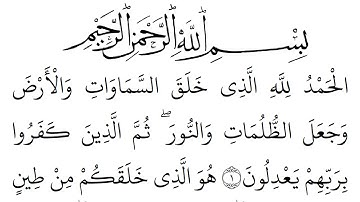 بِسْمِ اللَّهِ الرَّحْمَٰنِ الرَّحِيمِ
الْحَمْدُ لِلَّهِ الَّذِى خَلَقَ السَّمَاوَاتِ وَالْأَرْضَ
وَجَعَلَ الظُّلُمَاتِ وَالنُّورَ ۖ ثُمَّ الَّذِينَ كَفَرُوا
بِرَبِّهِمْ يَعْدِلُونَ ۝١ هُوَ الَّذِى خَلَقَكُمْ مِنْ طِينٍ